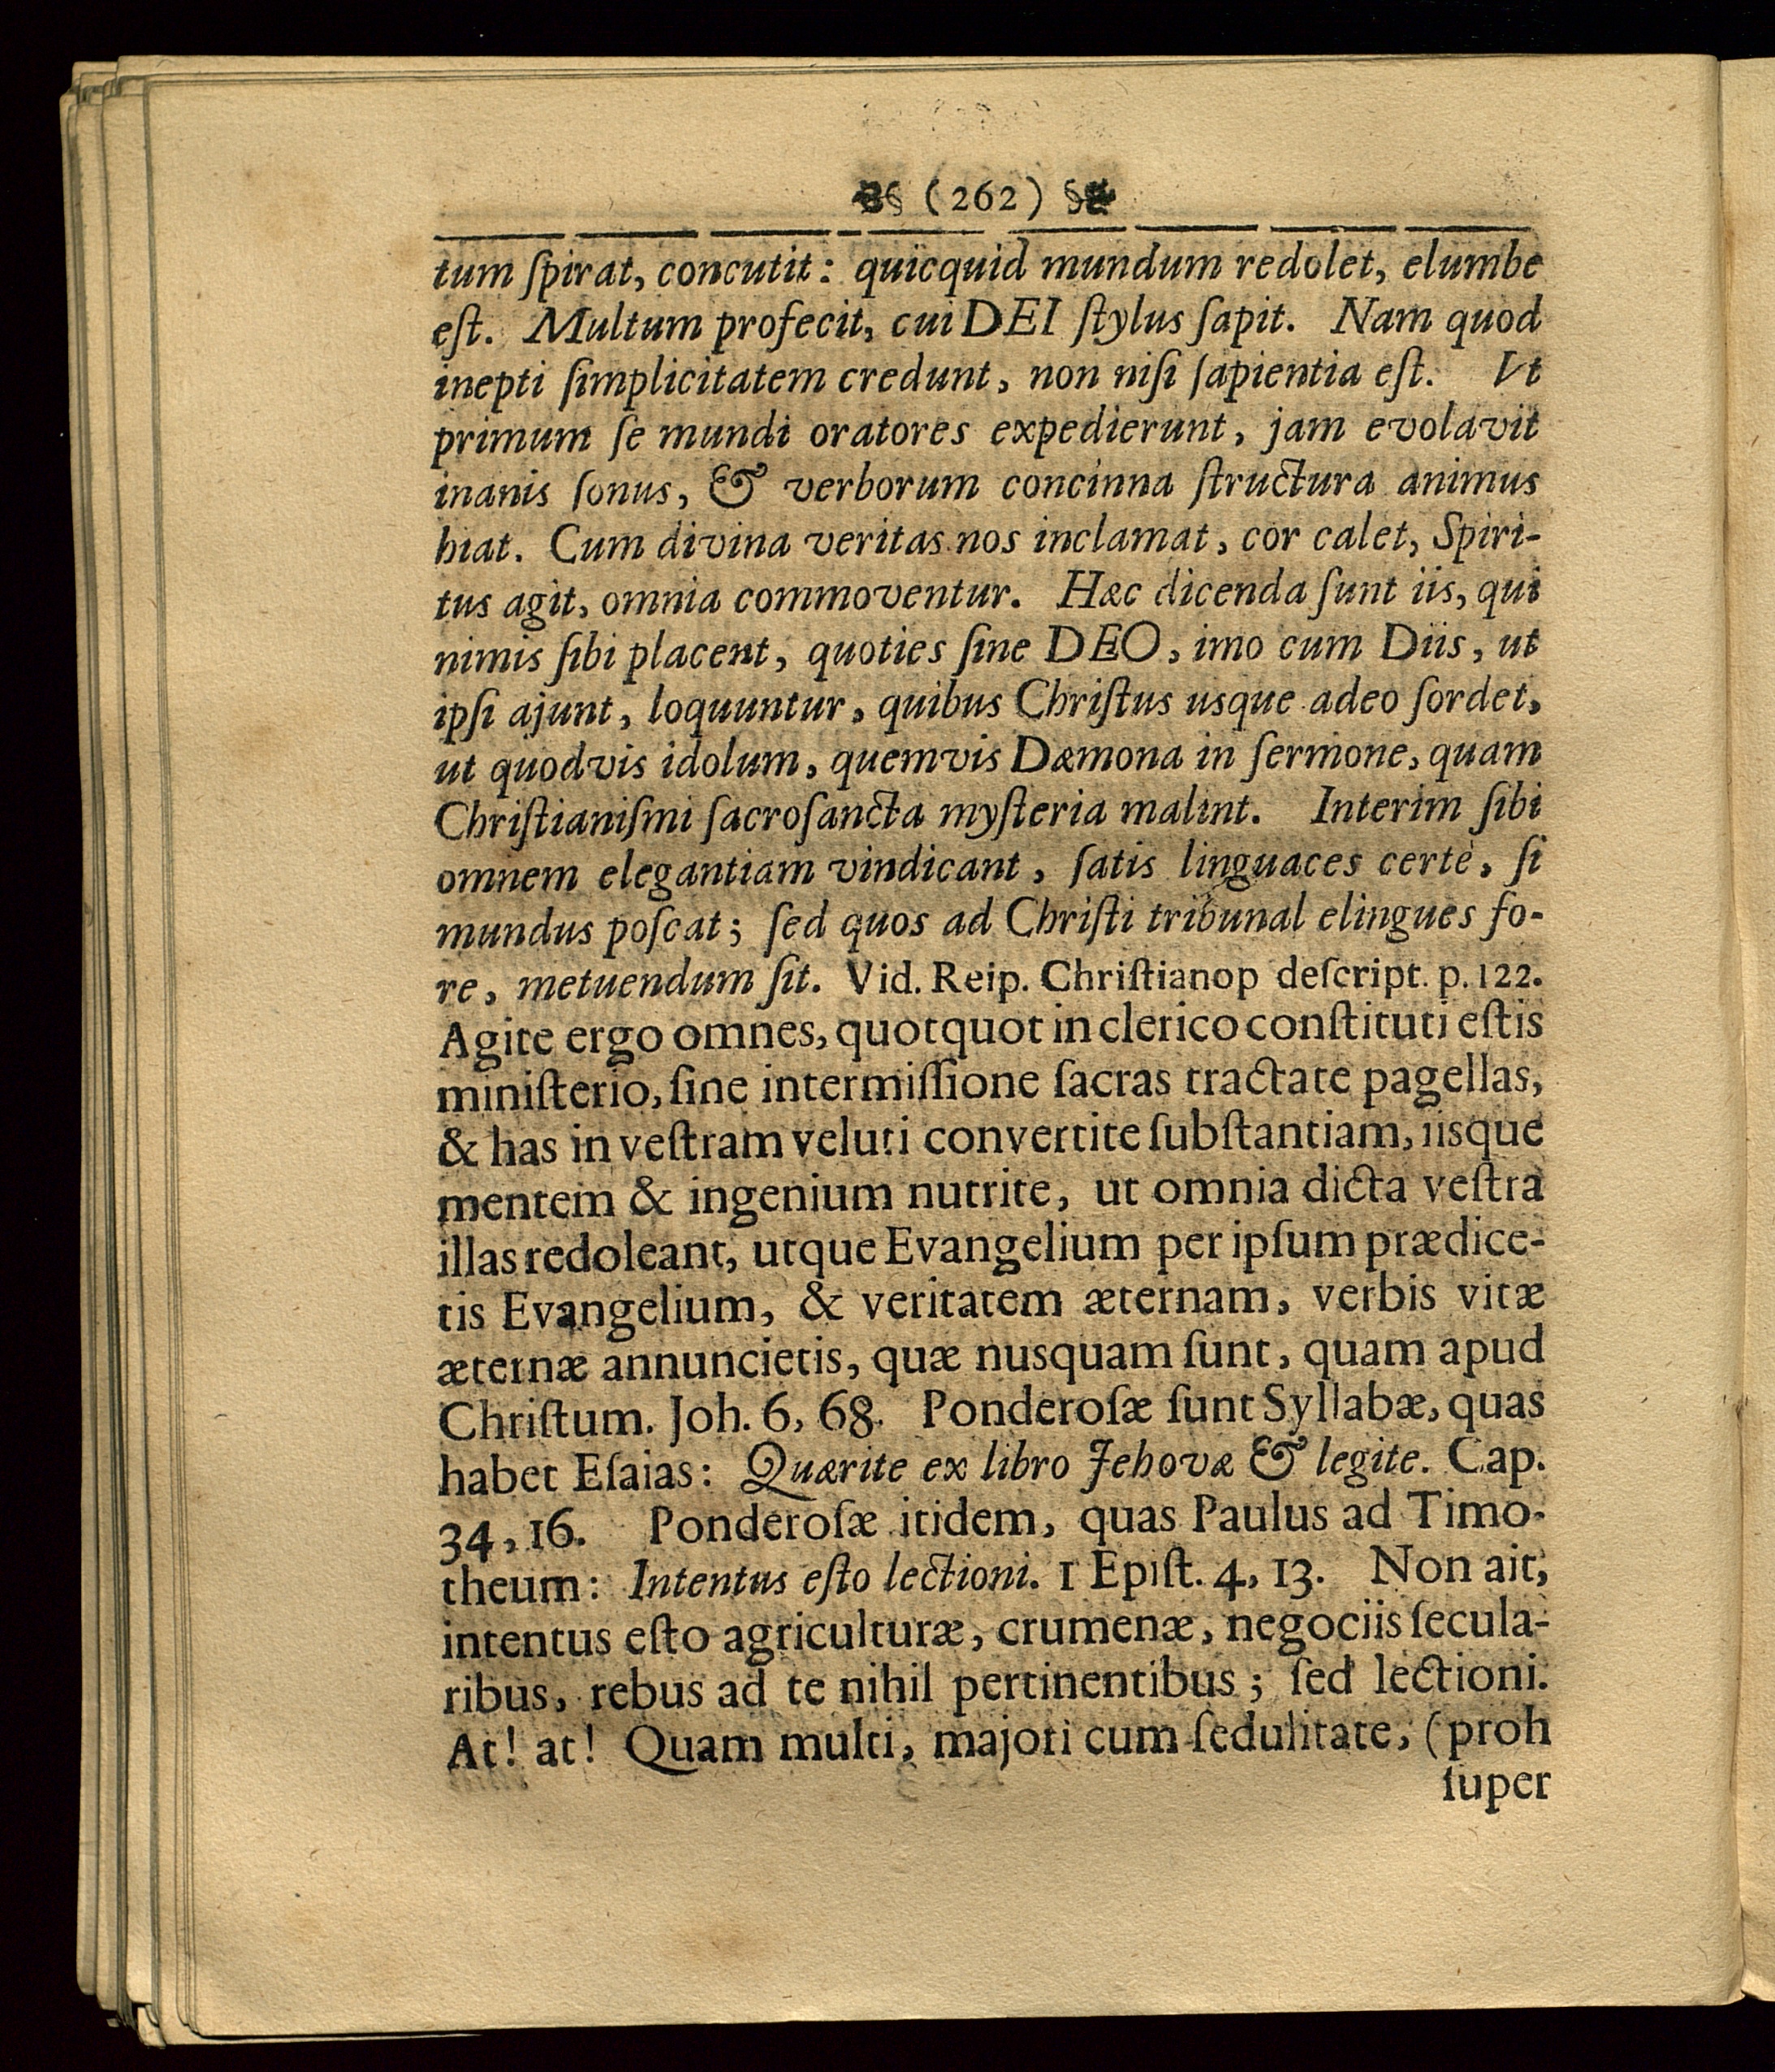 (262)
tum ſpirat, concutit: quicquid mundum redolet, elumbe
eſt. Multum profecit, cui DEI ſtylus ſapit. Nam quod
inepti ſimplicitatem credunt, non niſi ſapientia eſt. Vt
primum ſe mundi oratores expedierunt, jam evolavit
inanis ſonus, & verborum concinna ſtructura animus
hiat. Cum divina veritas nos inclamat, cor calet, Spiri-
tus agit, omnia commoventur. Hæc dicenda ſunt iis, qui
nimis ſibi placent, quoties ſine DEO, imo cum Diis, ut
ipſi ajunt, loquuntur, quibus Chriſtus usque adeo ſordet,
ut quodvis idolum, quemvis Dæmona in ſermone, quam
Chriſtianiſmi ſacroſancta myſteria malint. Interim ſibi
omnem elegantiam vindicant, ſatis linguaces certè, ſi
mundus poſcat; ſed quos ad Chriſti tribunal elingues fo-
re, metuendum ſit. Vid. Reip. Chriſtianop deſcript. p. 122.
Agite ergo omnes, quotquot in clerico conſtituti eſtis
miniſterio, ſine intermiſſione ſacras tractate pagellas,
& has in veſtram veluti convertite ſubſtantiam, iisque
mentem & ingenium nutrite, ut omnia dicta veſtra
illas redoleant, utque Evangelium per ipſum prædice-
tis Evangelium, & veritatem æternam, verbis vitæ
æternæ annuncietis, quæ nusquam ſunt, quam apud
Chriſtum. Joh. 6, 68. Ponderoſæ ſunt Syllabæ, quas
habet Eſaias: Quærite ex libro Jehovæ & legite. Cap.
34, 16. Ponderoſæ itidem, quas Paulus ad Timo-
theum: Intentus eſto lectioni. 1 Epiſt. 4, 13. Non ait,
intentus eſto agriculturæ, crumenæ, negociis ſecula-
ribus, rebus ad te nihil pertinentibus; ſed lectioni.
At! at! Quam multi, majori cum ſedulitate, (proh
ſuper